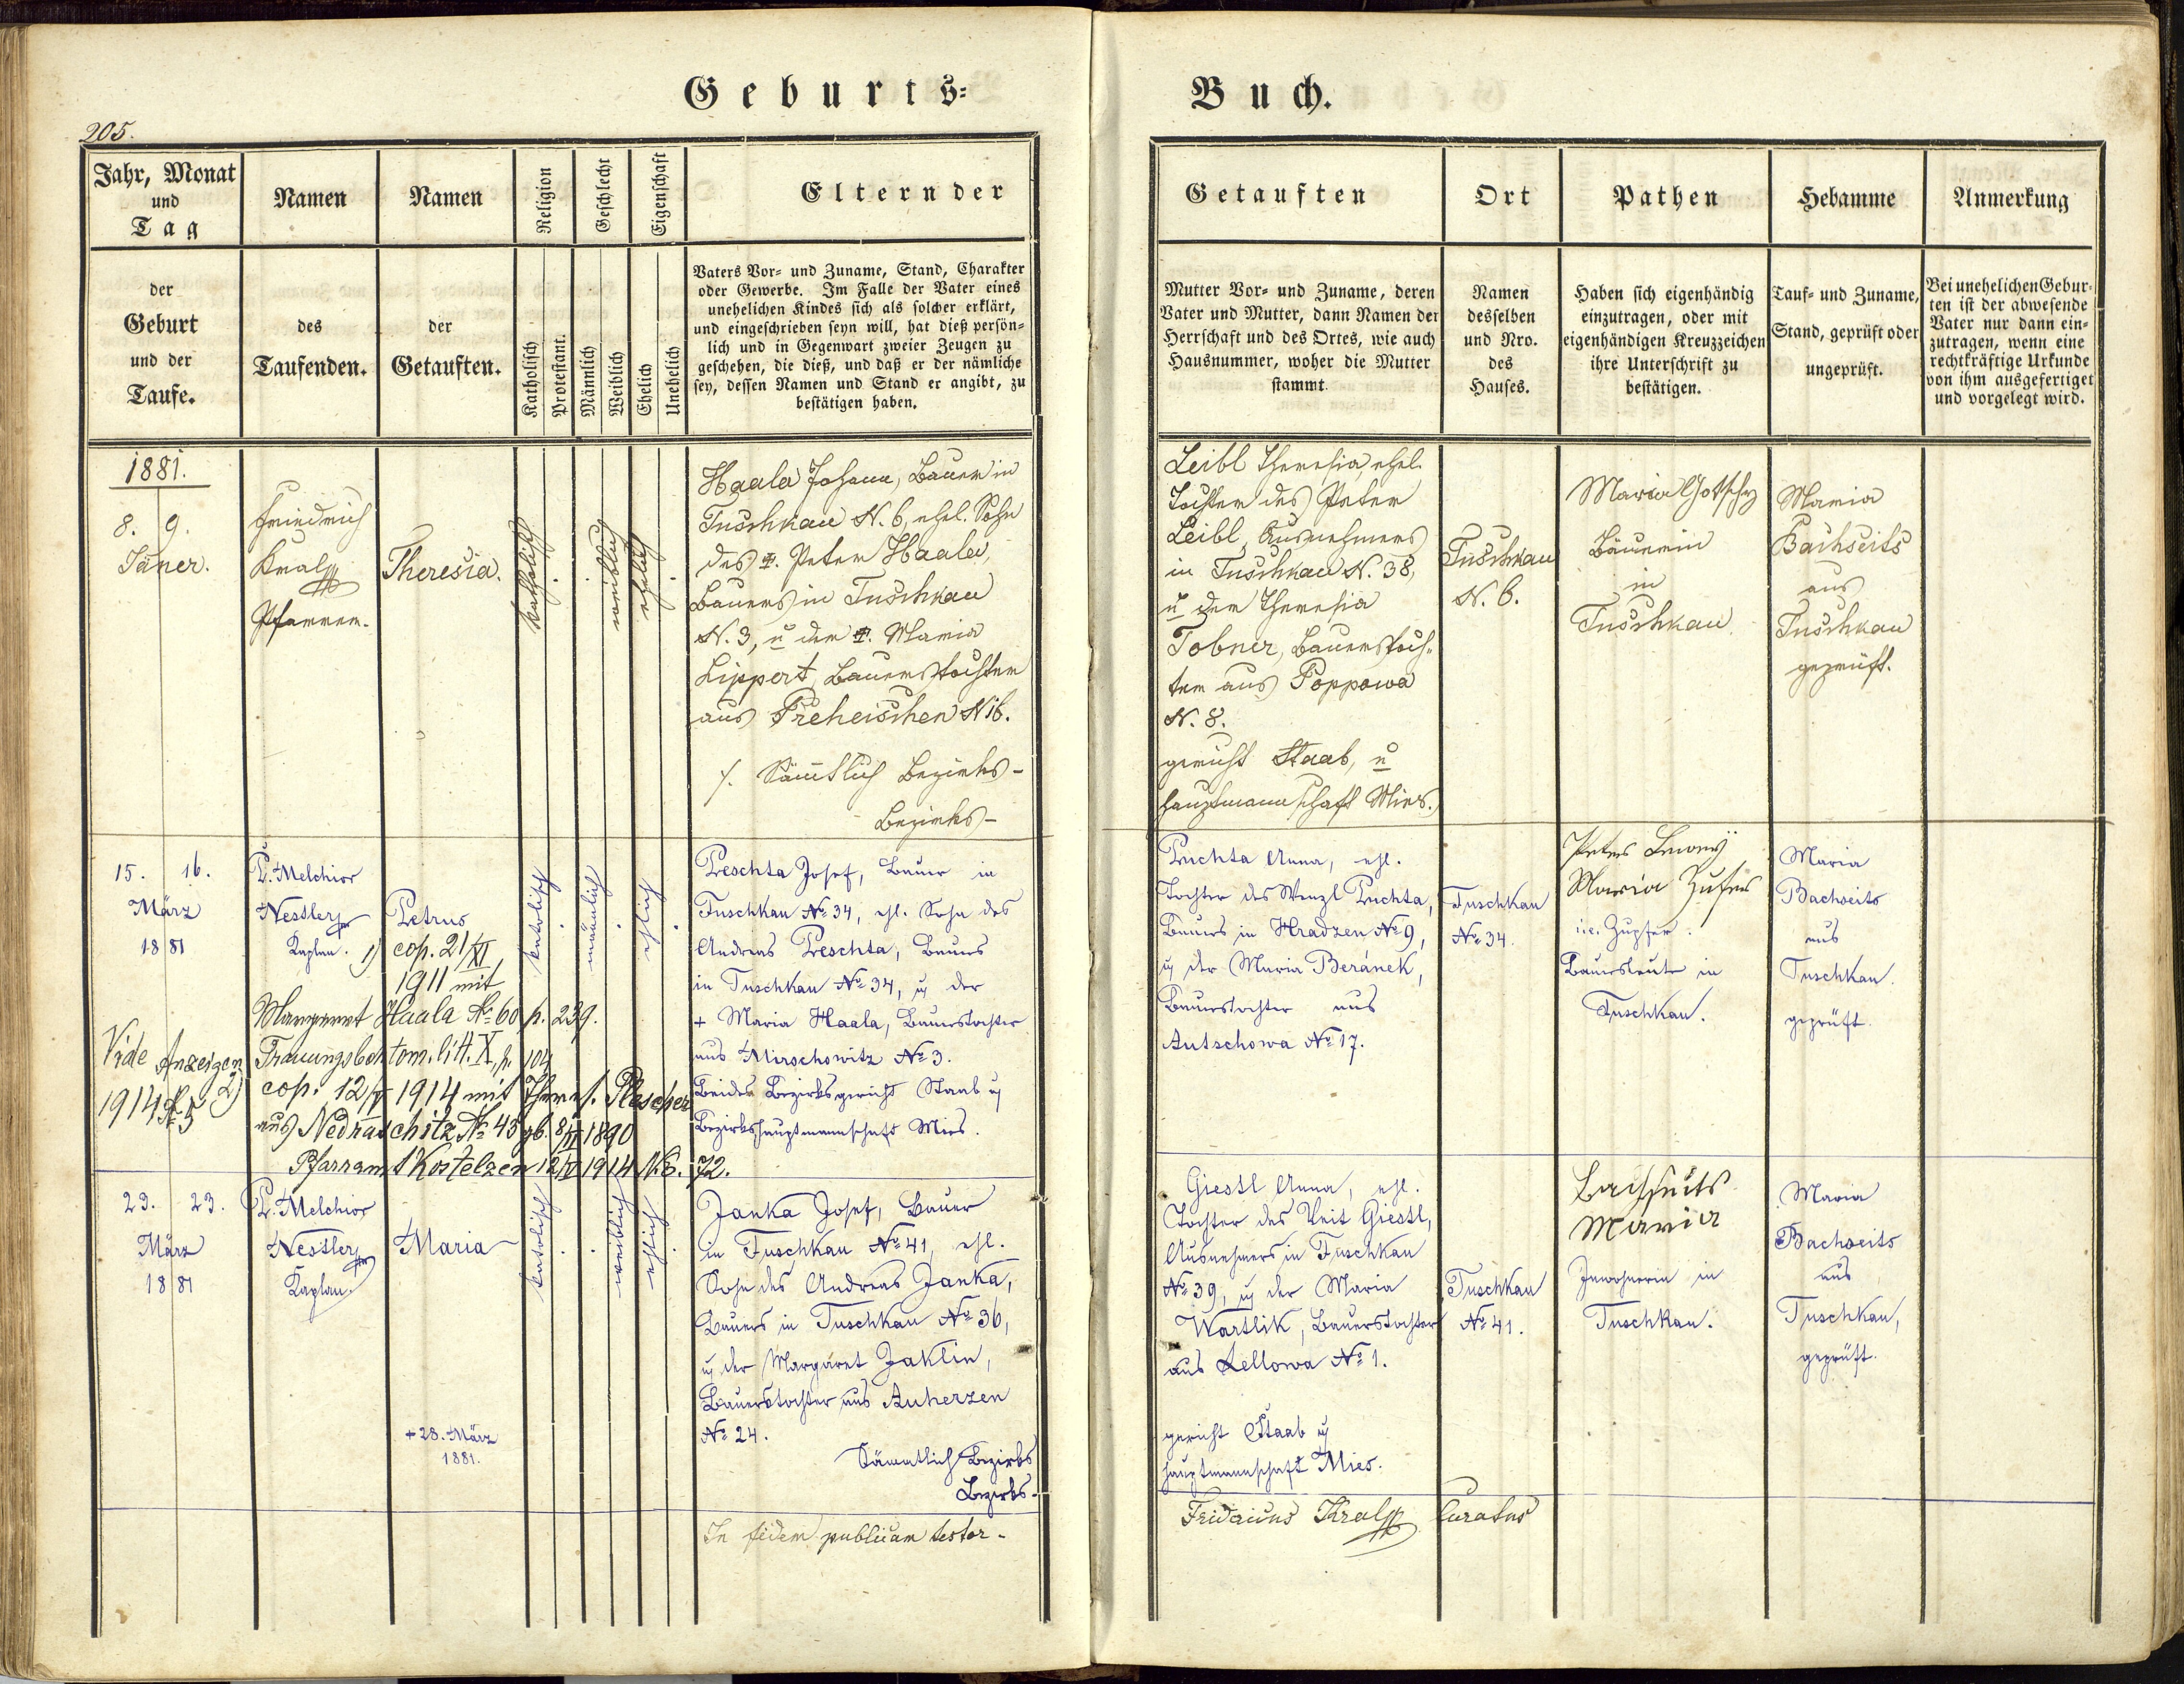 Geburts=
Buch.
205.
Jahr, Monat
und
Tag
Namen
Namen
Religion
Geschlecht
Eigenschaft
Eltern der
Getauften
Ort
Pathen
Hebamme
Anmerkung
der
Geburt
und der
Taufe.
des
Taufenden.
der
Getauften.
Katholisch
Protestant.
Männlich
Weiblich
Ehelich
Unehelich
Vaters Vor= und Zuname, Stand, Charakter
oder Gewerbe. Im Falle der Vater eines
unehelichen Kindes sich als solcher erklärt,
und eingeschrieben seyn will, hat dieß persön=
lich und in Gegenwart zweier Zeugen zu
geschehen, die dieß, und daß er der nämliche
sey, dessen Namen und Stand er angibt, zu
bestätigen haben.
Mutter Vor= und Zuname, deren
Vater und Mutter, dann Namen der
Herrschaft und des Ortes, wie auch
Hausnummer, woher die Mutter
stammt.
Namen
desselben
und Nro.
des
Hauses.
Haben sich eigenhändig
einzutragen, oder mit
eigenhändigen Kreuzzeichen
ihre Unterschrift zu
bestätigen.
Tauf= und Zuname,
Stand, geprüft oder
ungeprüft.
Bei unehelichen Gebur=
ten ist der abwesende
Vater nur dann ein=
zutragen, wenn eine
rechtkräftige Urkunde
von ihm ausgefertiget
und vorgelegt wird.
1881.
8. 9.
Jäner.
Friedrich
Kral
Pfarrer.
Theresia.
katholisch
weiblich
ehelich
Haala Johann, Bauer in
Tuschkau N. 6, ehel. Sohn
des ‡. Peter Haala,
Bauers in Tuschkau
N. 3, u der ‡. Maria
Lippert, Bauerstochter
aus Preheischen N 16.
/. Sämtlich Bezirks-
Bezirks-
Leibl Theresia, ehel.
Tochter des Peter
Leibl, Ausnehmers
in Tuschkau N. 38,
u der Theresia
Tobner, Bauerstoch=
ter aus Poppowa
N. 8.
gericht Staab, u
hauptmannschaft Mies.
Tuschkau
N. 6.
Maria Gotschy
Bäuerin
in
Tuschkau
Maria
Bachseits
aus
Tuschkau
geprüft.
15. 16.
März
1881
P. Melchior
Nestler
Kaplan.
Petrus
1) cop. 21/XI
1911 mit
Margaret Haala No 60 p. 239.
Trauungsbuch tom. litt. X, p. 104
Vide Anzeigen
1914 No 5
2) cop. 12/V 1914 mit Theres. Plascher
aus Nedraschitz No 45 gb. 8/VI 1890
Pfarramt Kostelzen 12/V 1914 N.E. 72.
katolisch
mänlich
ehelich
Peschta Josef, Bauer in
Tuschkau No 34, ehl. Sohn des
Andreas Peschta, Bauers
in Tuschkau No 34, u der
+ Maria Haala, Bauerstochter
aus Mirschowitz No 3.
Beides Bezirksgericht Staab u
Bezirkshauptmannschaft Mies.
Puchta Anna, ehl.
Tochter des Wenzl Puchta,
Bauers in Hradzen No 9,
u der Maria Beránek,
Bauerstochter aus
Autschowa No 17.
Tuschkau
No 34.
Peter
Maria Zufer
i.e. Zupfer.
Bauersleute in
Tuschkau.
Maria
Bachseits
aus
Tuschkau.
geprüft.
23. 23.
März
1881
P. Melchior
Nestler
Kaplan.
Maria
+ 28. März
1881.
katolisch
weiblich
ehelich
Janka Josef, Bauer
in Tuschkau No 41, ehl.
Sohn des Andreas Janka,
Bauers in Tuschkau No 36,
u der Margaret Jaklin,
Bauerstochter aus Auherzen
No 24.
Sämmtlich Bezirks
Bezirks-
Giestl Anna, ehl.
Tochter des Veit Giestl,
Ausnehmers in Tuschkau
No 39, u der Maria
Wartlik, Bauerstochter
aus Lellowa No 1.
gericht Staab u
hauptmannschaft Mies.
Tuschkau
No 41.
Bachseits
Maria
Inwohnerin in
Tuschkau.
Maria
Bachseits
aus
Tuschkau,
geprüft.
In fidem publicam testor -
Fridericus Kral Curatus